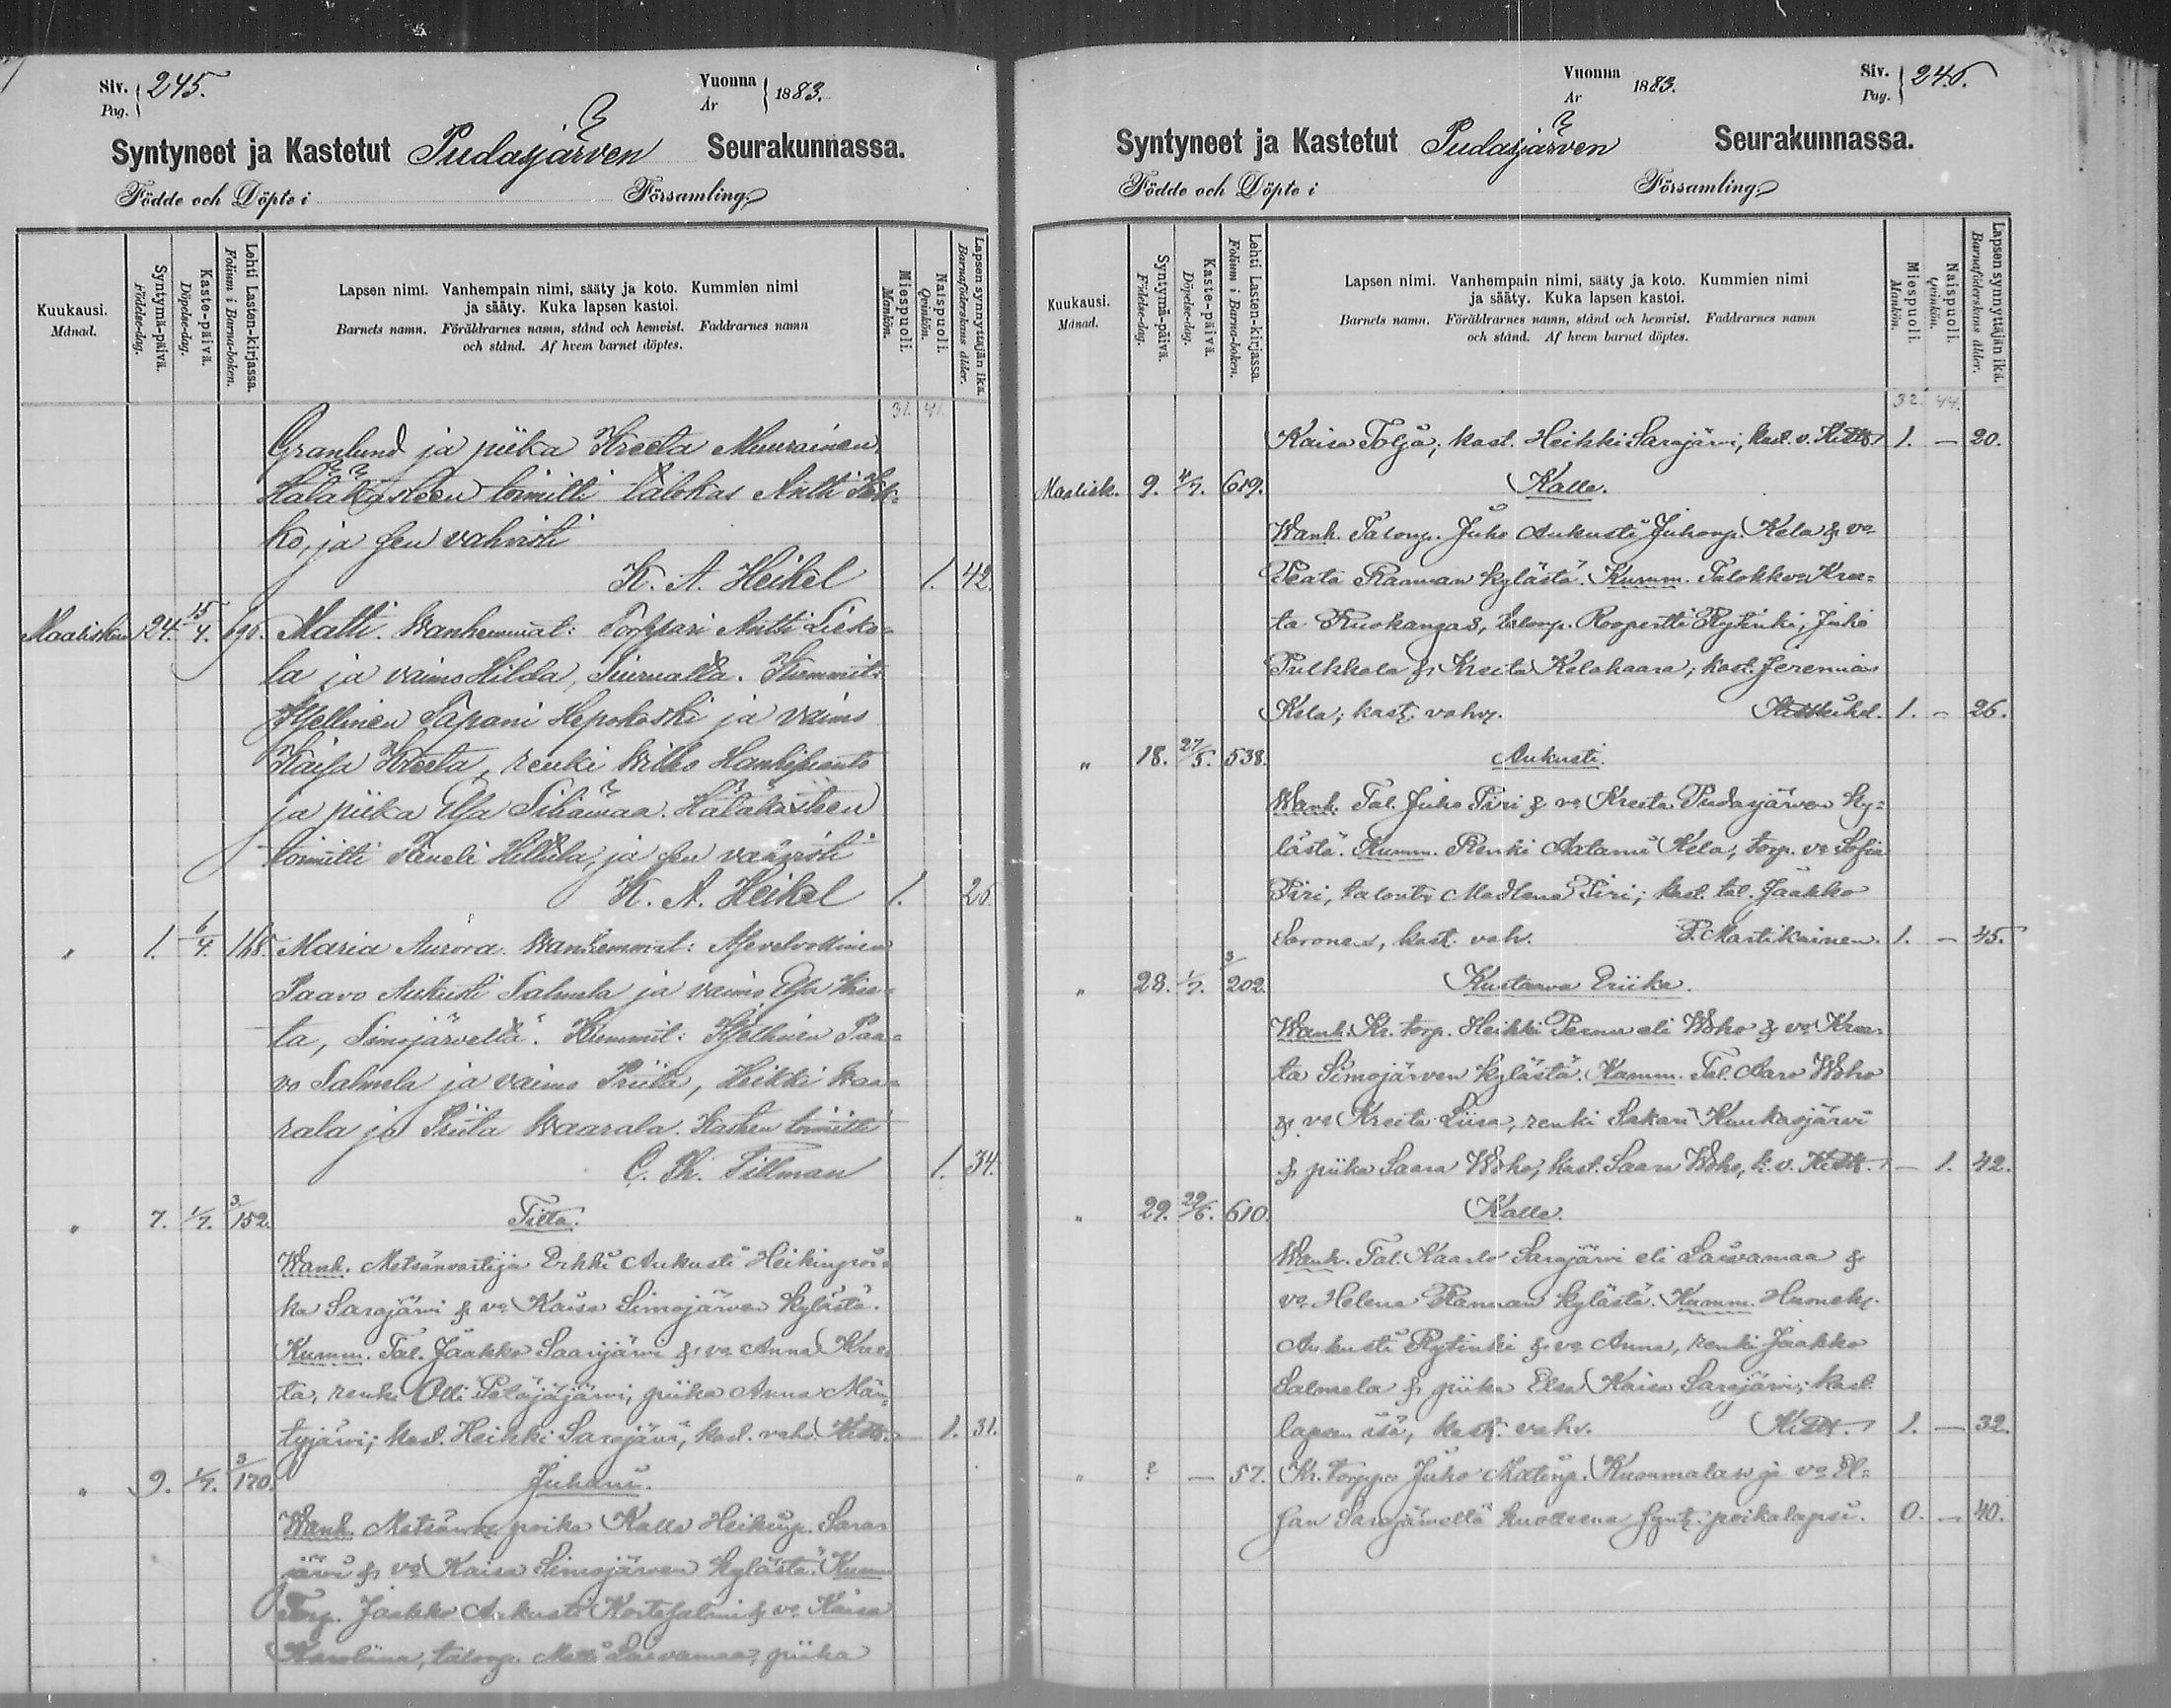 Siv. Pag. 245.
Vuonna År 1883.
Syntyneet ja Kastetut Pudasjärven Seurakunnassa.
Födde och Döpte i Församling
Kuukausi. Månad.
Syntymä-päivä. Födelse-dag.
Kaste-päivä. Döpelse-dag.
Lehti Lasten-kirjassa. Folium i Barna-boken.
Lapsen nimi. Vanhempain nimi, sääty ja koto. Kummien nimi
ja sääty. Kuka lapsen kastoi.
Barnets namn. Föräldrarnes namn, stånd och hemvist. Faddrarnes namn
och stånd. Af hvem barnet döptes.
Miespuoli. Mankön.
Naispuoli. Qvinkön.
Lapsen synnyttäjän ikä. Barnaföderskans ålder.
31. 41.
Granlund ja piika Kreeta Muurainen
Hätäkasteen toimitti talokas Antti
ko, ja sen vahvisti
K. A. Heikel 1. 42.
Maaliskuu 24. 15/4. 690. Matti. Wanhemmat: Torppari Antti Lieko-
la ja vaimo Hilda, Siurualta. Kummit:
Itsellinen Tapani Hepokoski ja vaimo
Kaisa Kreeta, renki
ja piika Elsa Siliämaa. Hätäkasteen
toimitti Taneli Hillula, ja sen vahvisti
K. A. Heikel 1. 26.
" 1. 6/4. 168. Maria Aurora. Wanhemmat:
Paavo Aukusti Salmela ja vaimo Elsa Kree-
ta, Simojärveltä. Kummit: Itsellinen Paa-
vo Salmela ja vaimo Priita, Heikki Waa-
rala ja Priita Waarala. Kasteen toimitti
C. Th. Tillman 1. 34.
" 7. 1/7. 3/152. Tilta.
Wanh. Metsänvartija Erkki Aukusti Heikinpoi-
ka Sarajärvi & vo Kaisa Simojärven kylästä.
Kumm. Tal. Jaakko Saarijärvi & vo Anna Kree-
ta, renki Olli Petäjäjärvi, piika Anna Män-
tyjärvi; kast. Heikki Sarajärvi, kast. vahv. 1. 31.
" 9. 1/7. 3/170. Juhani.
Wanh. poika Kalle Heikinp. Sara-
järvi & vo Kaisa Simojärven kylästä. Kumm
Torp. Jaakko Aukusti Kortesalmi & vo Kaisa
Karoliina, talonp. Matti Laivamaa, piika
Vuonna År 1883.
Siv. Pag. 246.
Syntyneet ja Kastetut Pudasjärven Seurakunnassa.
Födde och Döpte i Församling
Kuukausi. Månad.
Syntymä-päivä. Födelse-dag.
Kaste-päivä. Döpelse-dag.
Lehti Lasten-kirjassa. Folium i Barna-boken.
Lapsen nimi. Vanhempain nimi, sääty ja koto. Kummien nimi
ja sääty. Kuka lapsen kastoi.
Barnets namn. Föräldrarnes namn, stånd och hemvist. Faddrarnes namn
och stånd. Af hvem barnet döptes.
Miespuoli. Mankön.
Naispuoli. Qvinkön.
Lapsen synnyttäjän ikä. Barnaföderskans ålder.
32. 44.
Kaisa Tolja; kast. Heikki Sarajärvi, kast. v. 1. — 20.
Maalisk. 9. 4/7. 619. Kalle.
Wanh. Talonp. Juho Aukusti Juhonp. Kela & vo
Peata Ranuan kylästä. Kumm. Talokk. vo Kree-
ta Ruokangas, talonp. Roopertti Rytinki, Juho
Pulkkala & Kreeta Kelahaara; kast. Jeremias
Kela; kast. vahv. 1. — 26.
" 18. 27/5. 538. Aukusti.
Wanh. Tal. Juho Piri & vo Kreeta Pudasjärven ky-
lästä. Kumm. Renki Aatami Kela, torp. vo Sofia
Piri, talontr Madlena Piri; kast. tal. Jaakko
Soronen, kast. vah. P. Martikainen. 1. — 45.
" 28. 1/7. 3/202. Kustaava Eriika.
Wanh. Kr. torp. Heikki Pernu eli Woho & vo Kree-
ta Simojärven kylästä. Kumm. Tal. Aaro Woho
& vo Kreeta Liisa, renki Sakari Kuukasjärvi
& piika Saara Woho, kast. Saara Woho, k. v. — 1. 42.
" 29. 29/6. 610. Kalle.
Wanh. Tal. Kaarlo Sarajärvi eli Laivamaa &
vo Helena Ranuan kylästä. Kumm.
Aukusti Rytinki & vo Anna, renki Jaakko
Salmela & piika Elsa Kaisa Sarajärvi; kast.
lapsen isä, kast. vahv. 1. — 32.
" ? — 57. Kr. torpp. Juho Matinp. Kuonmalan ja vo El-
san Sarajärvellä kuolleena synt. poikalapsi. 0. — 40.